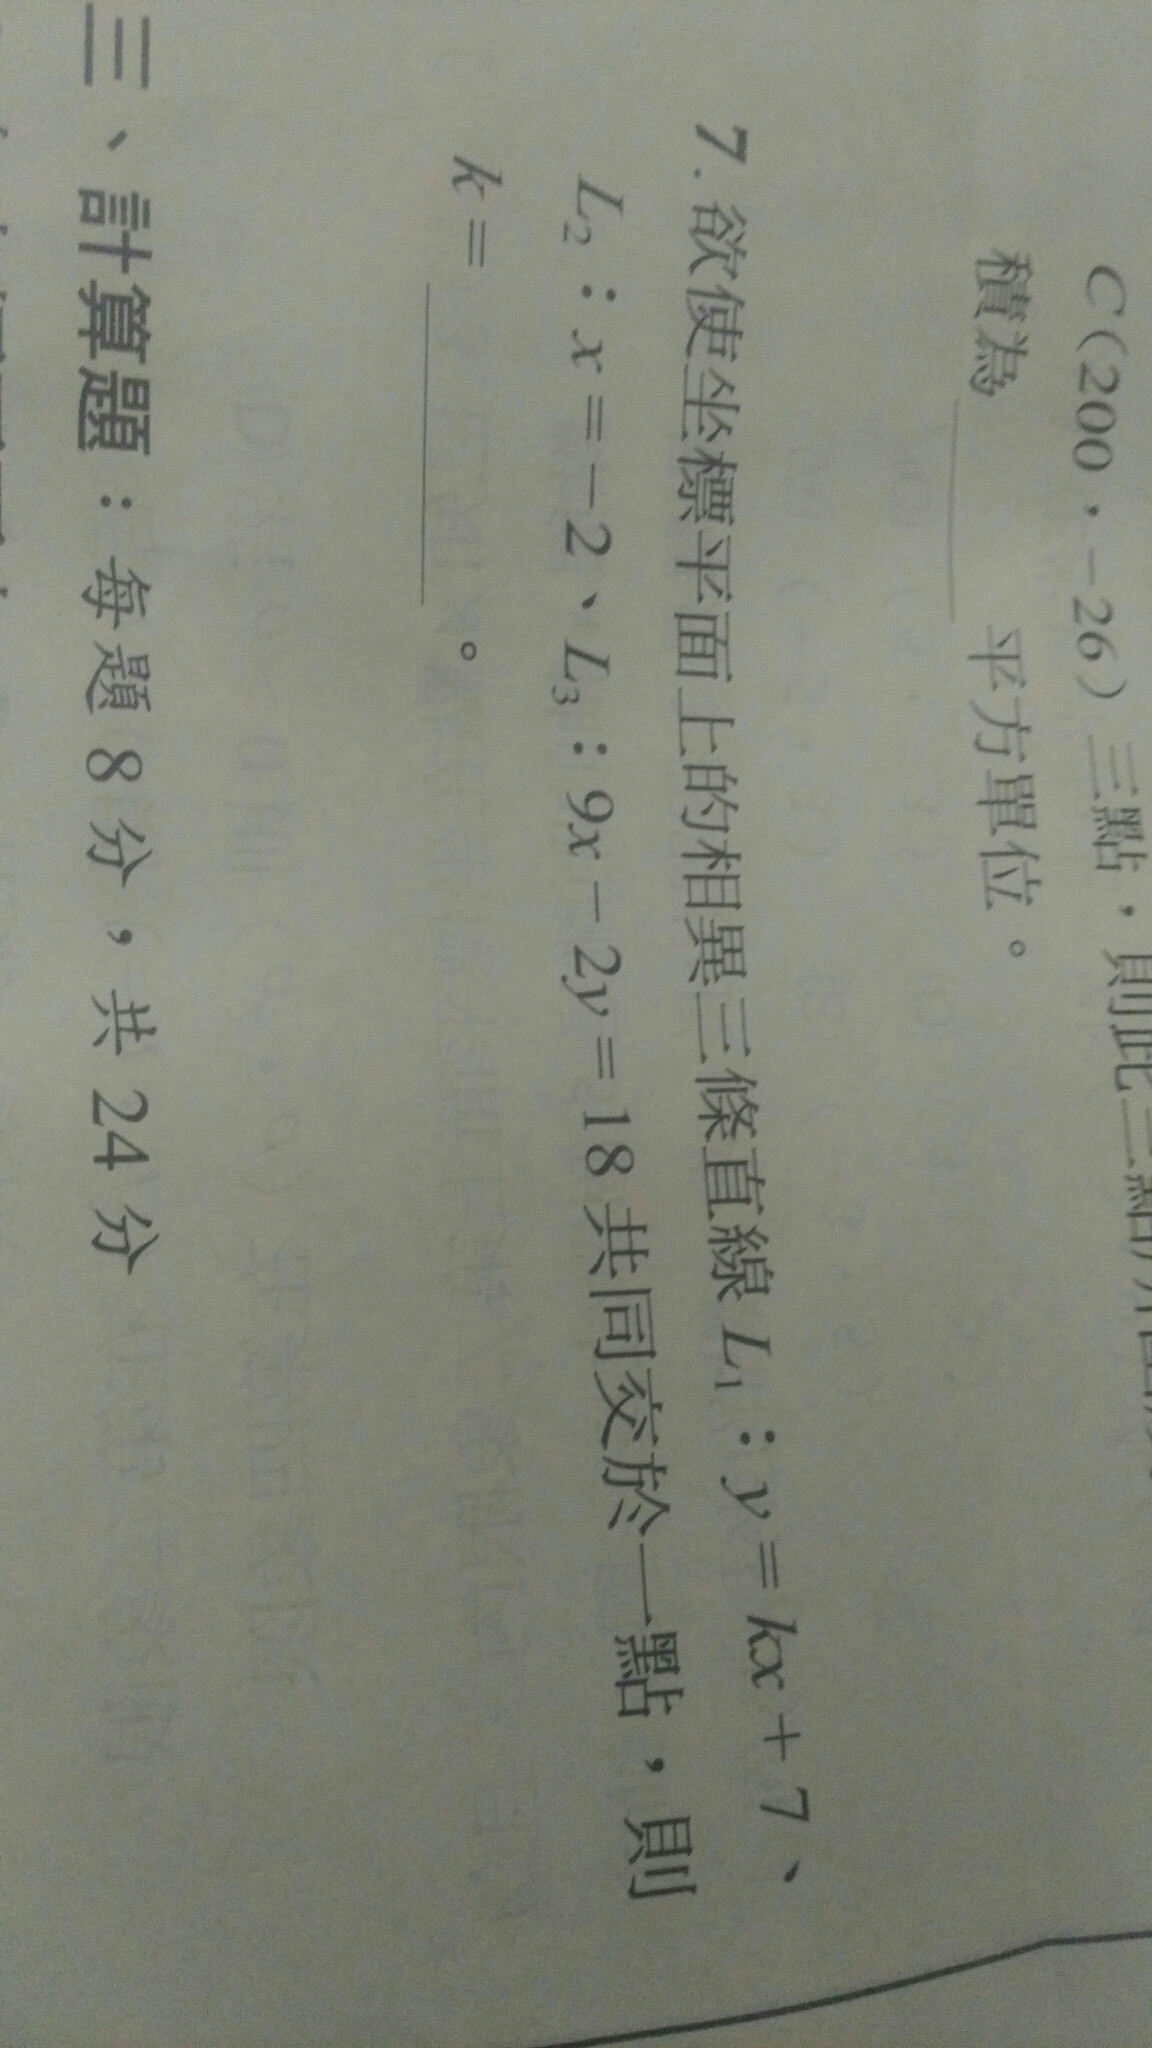 C(200，-26)三點，則此三點所圍
積為＿＿＿平方單位。
7.欲使坐標平面上的相異三條直線L₁：y=kx+7、
L₂：x=-2、L₃：9x-2y=18共同交於一點，則
k=＿＿＿。
三、計算題：每題8分，共24分